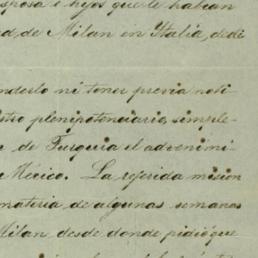 sposa e hijos que le habian
d, de Milan en Italia, dedi
nderlo ni tener previa noti
stro plenipotenciario, simple-
de Turquia el advenimi
México. La referida mision
materia de algunas semanas
Milan desde donde pidió que